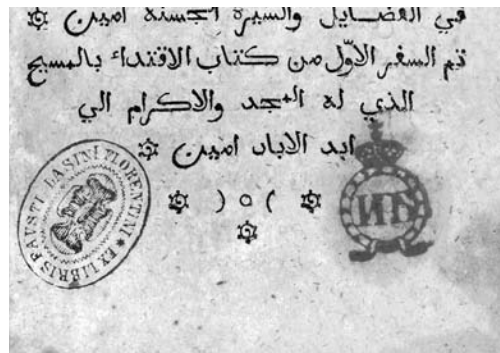 في الفضايل والسيرة الحسنه امين
تم السفر الاوّل من كتاب الاقتداء بالمسيح
الذي له المجد والاكرام الي
ابد الاباد امين
EX LIBRIS FAUSTI LASINI FLORENTINI